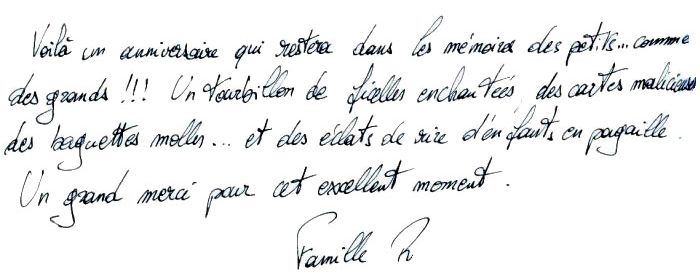 Voilà un anniversaire qui restera dans les mémoires des petits... comme
des grands !!! Un tourbillon de ficelles enchantées, des cartes malicieuses
des baguettes molles... et des éclats de rire d'enfants en pagaille.
Un grand merci pour cet excellent moment.
Famille R